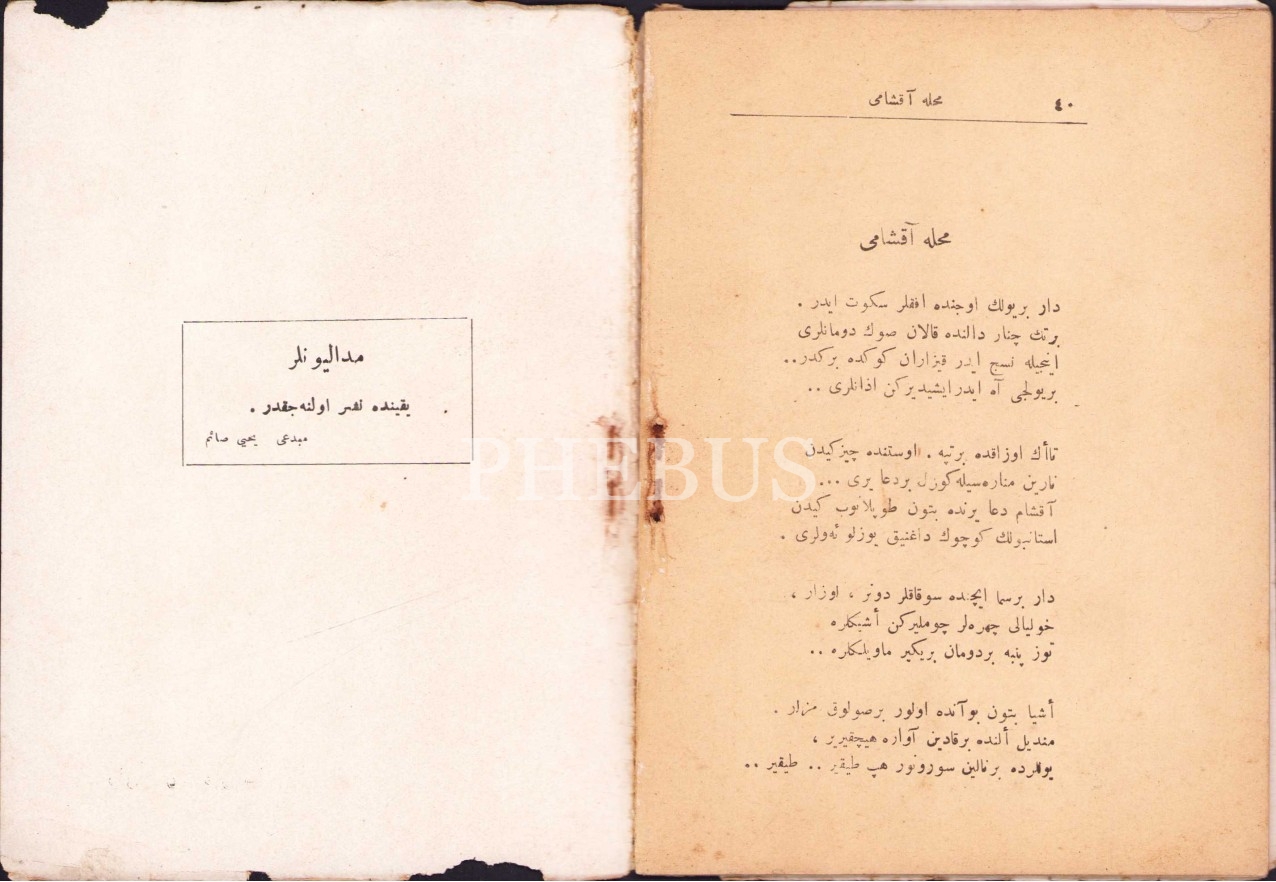 ٤٠
محله آقشامی
محله آقشامی
دار بریولك اوجنده افقلر سکوت ایدر .
برتك چنار دالنده قالان صوك دومانلری
اینجیله نسج ایدر قیزاران کوکده برکدر..
بریولجی آه ایدر ایشیدیرکن اذانلری ..
تا أك اوزاقده برتپه . اوستنده چیزکیدن
نارین مناره‌سیله کوزل بردعا یری ...
آقشام دعا یرنده بتون طوپلانوب کیدن
استانبولك کوچوك داغنیق یوزلو ئه‌ولری .
دار برسما ایچنده سوقاقلر دونر ، اوزار ،
خولیالی چهره‌لر چوملیرکن أشیکلره
توز پنبه بردومان بریکیر ماویلکلره ..
أشیا بتون بوآنده اولور برصولوق مزار .
مندیل ألنده برقادین آواره هیچقیریر ،
یوللرده برنالین سورونور هپ طیقیر .. طیقیر ..
مدالیونلر
یقینده نشر اولنه‌جقدر .
مبدعی یحیی صائم
PHEBUS